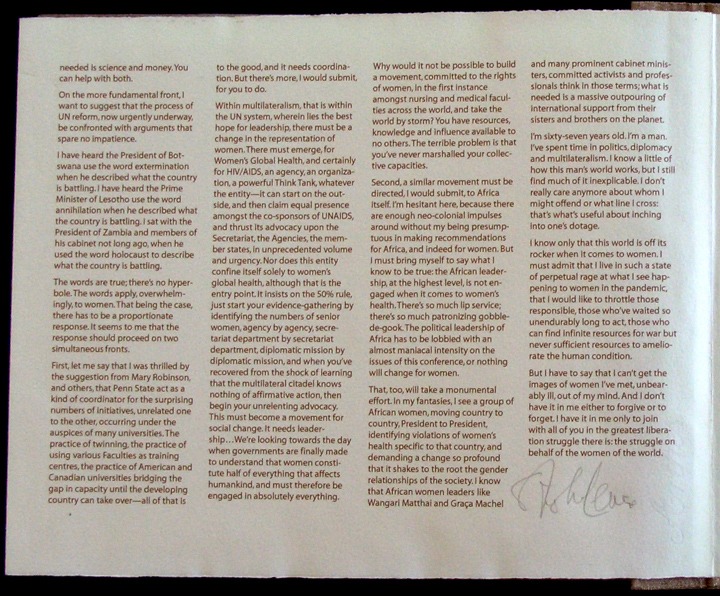 needed is science and money. You
can help with both.
On the more fundamental front, I
want to suggest that the process of
UN reform, now urgently underway,
be confronted with arguments that
spare no impatience.
I have heard the President of Bot-
swana use the word extermination
when he described what the country
is battling. I have heard the Prime
Minister of Lesotho use the word
annihilation when he described what
the country is battling. I sat with the
President of Zambia and members of
his cabinet not long ago, when he
used the word holocaust to describe
what the country is battling.
The words are true; there's no hyper-
bole. The words apply, overwhelm-
ingly, to women. That being the case,
there has to be a proportionate
response. It seems to me that the
response should proceed on two
simultaneous fronts.
First, let me say that I was thrilled by
the suggestion from Mary Robinson,
and others, that Penn State act as a
kind of coordinator for the surprising
numbers of initiatives, unrelated one
to the other, occurring under the
auspices of many universities. The
practice of twinning, the practice of
using various Faculties as training
centres, the practice of American and
Canadian universities bridging the
gap in capacity until the developing
country can take over—all of that is
to the good, and it needs coordina-
tion. But there's more, I would submit,
for you to do.
Within multilateralism, that is within
the UN system, wherein lies the best
hope for leadership, there must be a
change in the representation of
women. There must emerge, for
Women's Global Health, and certainly
for HIV/AIDS, an agency, an organiza-
tion, a powerful Think Tank, whatever
the entity—it can start on the out-
side, and then claim equal presence
amongst the co-sponsors of UNAIDS,
and thrust its advocacy upon the
Secretariat, the Agencies, the mem-
ber states, in unprecedented volume
and urgency. Nor does this entity
confine itself solely to women's
global health, although that is the
entry point. It insists on the 50% rule,
just start your evidence-gathering by
identifying the numbers of senior
women, agency by agency, secre-
tariat department by secretariat
department, diplomatic mission by
diplomatic mission, and when you've
recovered from the shock of learning
that the multilateral citadel knows
nothing of affirmative action, then
begin your unrelenting advocacy.
This must become a movement for
social change. It needs leader-
ship…We're looking towards the day
when governments are finally made
to understand that women consti-
tute half of everything that affects
humankind, and must therefore be
engaged in absolutely everything.
Why would it not be possible to build
a movement, committed to the rights
of women, in the first instance
amongst nursing and medical facul-
ties across the world, and take the
world by storm? You have resources,
knowledge and influence available to
no others. The terrible problem is that
you've never marshalled your collec-
tive capacities.
Second, a similar movement must be
directed, I would submit, to Africa
itself. I'm hesitant here, because there
are enough neo-colonial impulses
around without my being presump-
tuous in making recommendations
for Africa, and indeed for women. But
I must bring myself to say what I
know to be true: the African leader-
ship, at the highest level, is not en-
gaged when it comes to women's
health. There's so much lip service;
there's so much patronizing gobble-
de-gook. The political leadership of
Africa has to be lobbied with an
almost maniacal intensity on the
issues of this conference, or nothing
will change for women.
That, too, will take a monumental
effort. In my fantasies, I see a group of
African women, moving country to
country, President to President,
identifying violations of women's
health specific to that country, and
demanding a change so profound
that it shakes to the root the gender
relationships of the society. I know
that African women leaders like
Wangari Matthai and Graça Machel
and many prominent cabinet minis-
ters, committed activists and profes-
sionals think in those terms; what is
needed is a massive outpouring of
international support from their
sisters and brothers on the planet.
I'm sixty-seven years old. I'm a man.
I've spent time in politics, diplomacy
and multilateralism. I know a little of
how this man's world works, but I still
find much of it inexplicable. I don't
really care anymore about whom I
might offend or what line I cross:
that's what's useful about inching
into one's dotage.
I know only that this world is off its
rocker when it comes to women. I
must admit that I live in such a state
of perpetual rage at what I see hap-
pening to women in the pandemic,
that I would like to throttle those
responsible, those who've waited so
unendurably long to act, those who
can find infinite resources for war but
never sufficient resources to amelio-
rate the human condition.
But I have to say that I can't get the
images of women I've met, unbear-
ably ill, out of my mind. And I don't
have it in me either to forgive or to
forget. I have it in me only to join
with all of you in the greatest libera-
tion struggle there is: the struggle on
behalf of the women of the world.